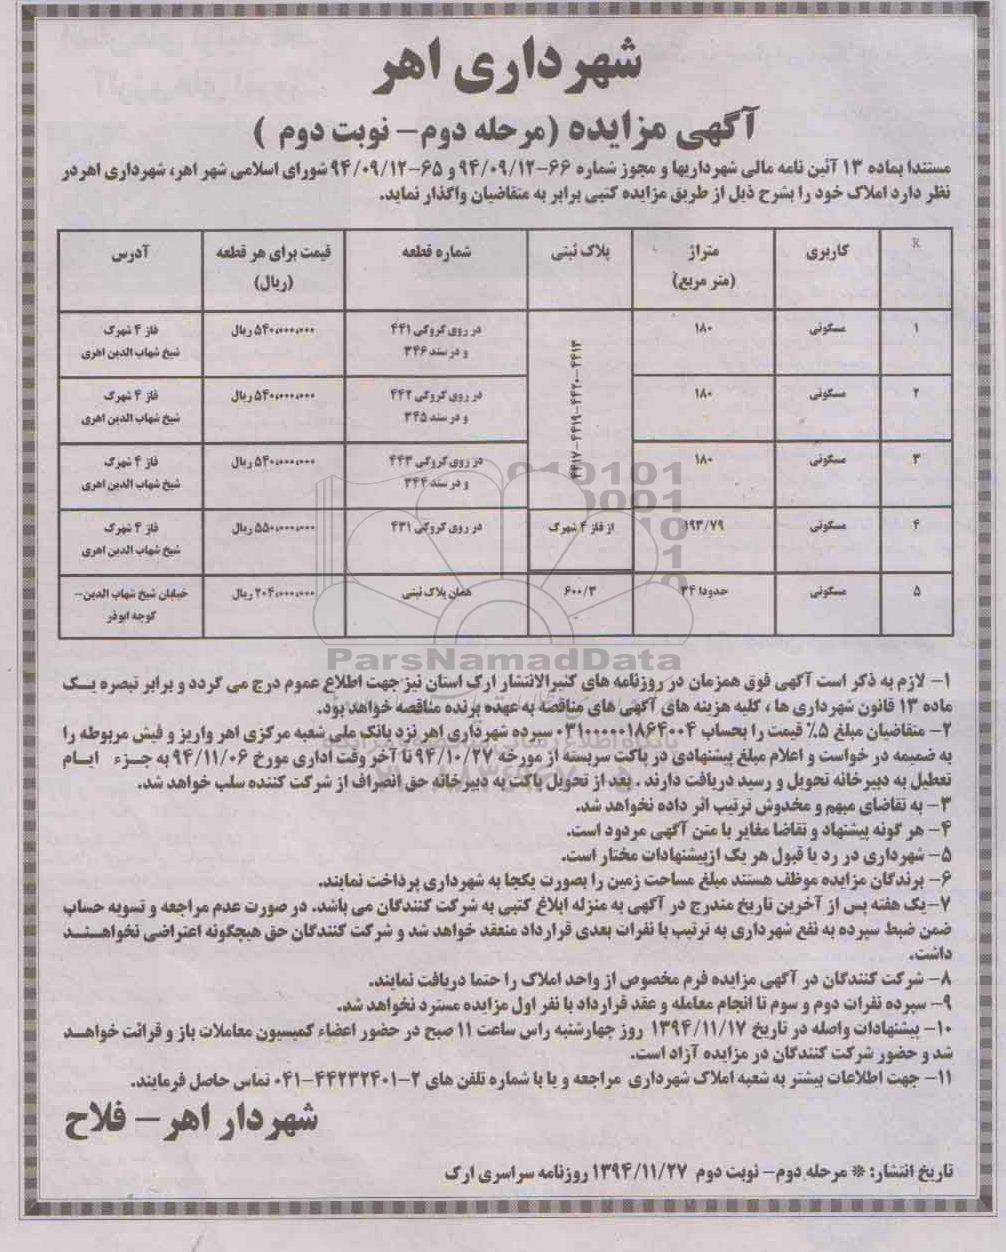 شهرداری اهر
آگهی مزایده (مرحله دوم- نوبت دوم )
مستندا بماده ۱۳ آئین نامه مالی شهرداریها و مجوز شماره ۶۶-۹۴/۰۹/۱۲ و ۶۵-۹۴/۰۹/۱۲ شورای اسلامی شهر اهر، شهرداری اهردر
نظر دارد املاک خود را بشرح ذیل از طریق مزایده کتبی برابر به متقاضیان واگذار نماید.
R کاربری متراژ (متر مربع) پلاک ثبتی شماره قطعه قیمت برای هر قطعه (ریال) آدرس
۱ مسکونی ۱۸۰ ۴۴۱۳-۴۴۲۰-۴۴۱۹-۴۴۱۷ در روی کروکی ۴۴۱ و در سند ۳۴۶ ۵۴۰،۰۰۰،۰۰۰ ریال فاز ۴ شهرک شیخ شهاب الدین اهری
۲ مسکونی ۱۸۰ در روی کروکی ۴۴۲ و در سند ۳۴۵ ۵۴۰،۰۰۰،۰۰۰ ریال فاز ۴ شهرک شیخ شهاب الدین اهری
۳ مسکونی ۱۸۰ در روی کروکی ۴۴۳ و در سند ۳۴۴ ۵۴۰،۰۰۰،۰۰۰ ریال فاز ۴ شهرک شیخ شهاب الدین اهری
۴ مسکونی ۱۹۳/۷۹ از فاز ۴ شهرک در روی کروکی ۴۳۱ ۵۵۰،۰۰۰،۰۰۰ ریال فاز ۴ شهرک شیخ شهاب الدین اهری
۵ مسکونی حدودا ۳۴ ۶۰۰/۳ همان پلاک ثبتی ۲۰۴،۰۰۰،۰۰۰ ریال خیابان شیخ شهاب الدین- کوچه ابوذر
ParsNamadData
۱- لازم به ذکر است آگهی فوق همزمان در روزنامه های کثیرالانتشار ارک استان نیز جهت اطلاع عموم درج می گردد و برابر تبصره یک
ماده ۱۳ قانون شهرداری ها ، کلیه هزینه های آگهی های مناقصه به عهده برنده مناقصه خواهد بود.
۲- متقاضیان مبلغ ۵٪ قیمت را بحساب ۰۳۱۰۰۰۰۰۱۸۶۴۰۰۴ سپرده شهرداری اهر نزد بانک ملی شعبه مرکزی اهر واریز و فیش مربوطه را
به ضمیمه در خواست و اعلام مبلغ پیشنهادی در پاکت سربسته از مورخه ۹۴/۱۰/۲۷ تا آخر وقت اداری مورخ ۹۴/۱۱/۰۶ به جزء ایام
تعطیل به دبیرخانه تحویل و رسید دریافت دارند . بعد از تحویل پاکت به دبیرخانه حق انصراف از شرکت کننده سلب خواهد شد.
۳- به تقاضای مبهم و مخدوش ترتیب اثر داده نخواهد شد.
۴- هر گونه پیشنهاد و تقاضا مغایر با متن آگهی مردود است.
۵- شهرداری در رد یا قبول هر یک ازپیشنهادات مختار است.
۶- برندگان مزایده موظف هستند مبلغ مساحت زمین را بصورت یکجا به شهرداری پرداخت نمایند.
۷-یک هفته پس از آخرین تاریخ مندرج در آگهی به منزله ابلاغ کتبی به شرکت کنندگان می باشد. در صورت عدم مراجعه و تسویه حساب
ضمن ضبط سپرده به نفع شهرداری به ترتیب با نفرات بعدی قرارداد منعقد خواهد شد و شرکت کنندگان حق هیچگونه اعتراضی نخواهند
داشت.
۸- شرکت کنندگان در آگهی مزایده فرم مخصوص از واحد املاک را حتما دریافت نمایند.
۹- سپرده نفرات دوم و سوم تا انجام معامله و عقد قرارداد با نفر اول مزایده مسترد نخواهد شد.
۱۰- پیشنهادات واصله در تاریخ ۱۳۹۴/۱۱/۱۷ روز چهارشنبه راس ساعت ۱۱ صبح در حضور اعضاء کمیسیون معاملات باز و قرائت خواهد
شد و حضور شرکت کنندگان در مزایده آزاد است.
۱۱- جهت اطلاعات بیشتر به شعبه املاک شهرداری مراجعه و یا با شماره تلفن های ۲-۴۴۲۳۲۴۰۱-۰۴۱ تماس حاصل فرمایند.
شهردار اهر - فلاح
تاریخ انتشار: * مرحله دوم- نوبت دوم ۱۳۹۴/۱۱/۲۷ روزنامه سراسری ارک